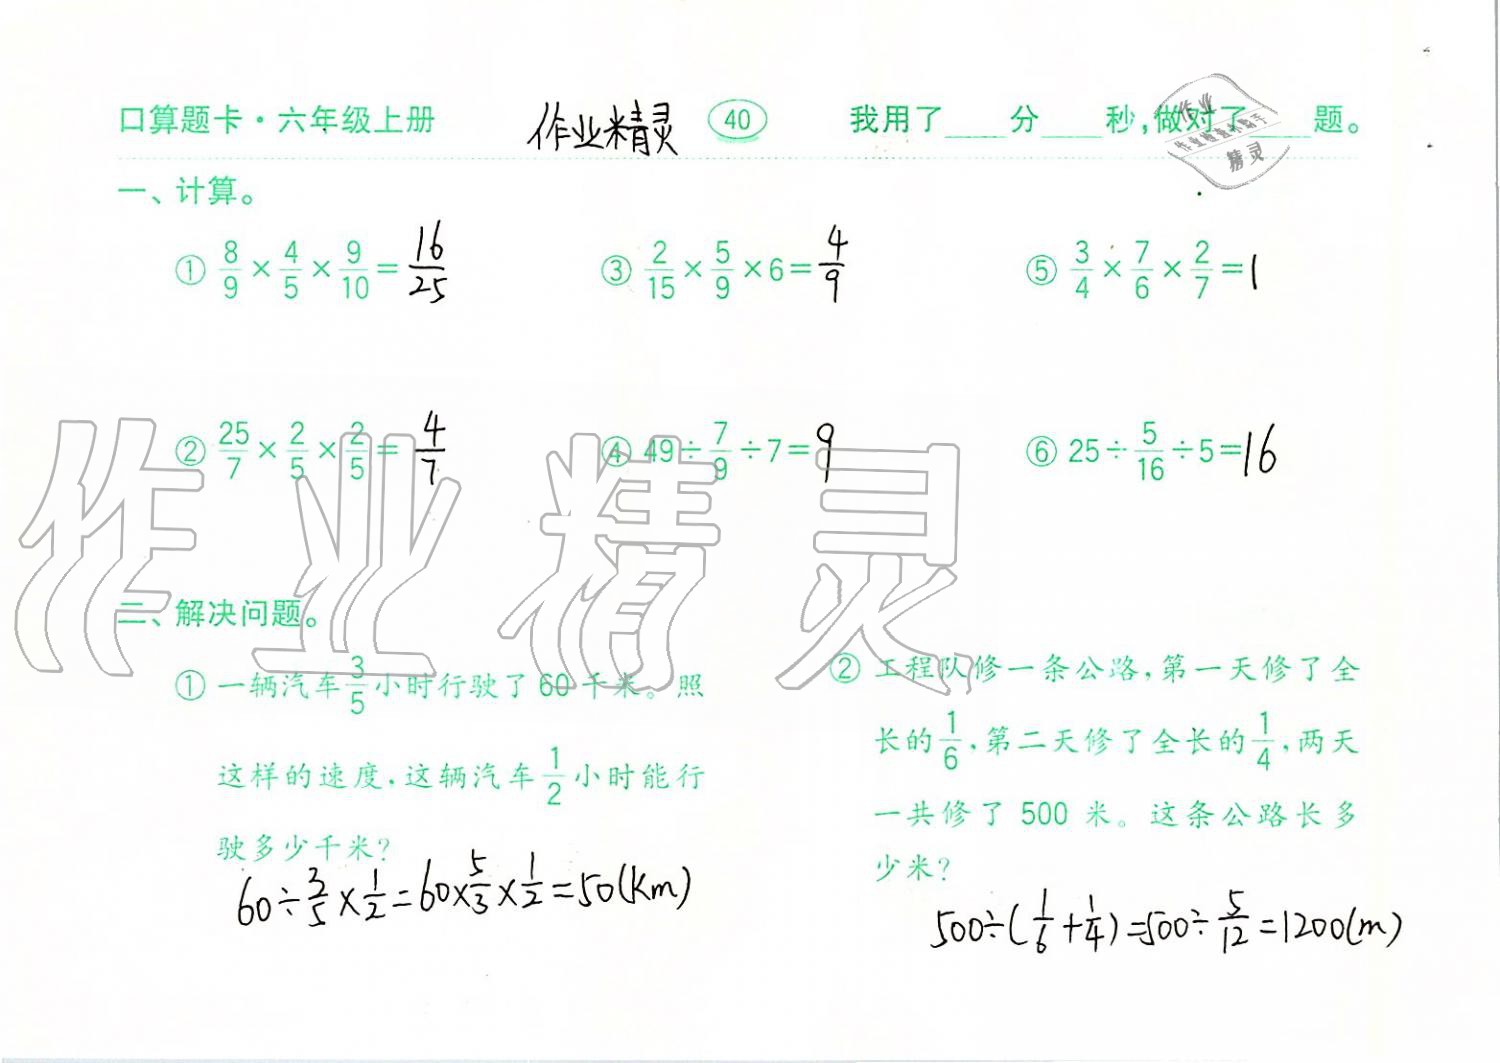 口算题卡·六年级上册 作业精灵 40 我用了____分____秒,做对了____题。
作业
作业检查小助手
精灵
一、计算。
① 8/9 × 4/5 × 9/10 = 16/25 ③ 2/15 × 5/9 × 6 = 4/9 ⑤ 3/4 × 7/6 × 2/7 = 1
② 25/7 × 2/5 × 2/5 = 4/7 ④ 49 ÷ 7/9 ÷ 7 = 9 ⑥ 25 ÷ 5/16 ÷ 5 = 16
作业精灵
二、解决问题。
① 一辆汽车3/5小时行驶了60千米。照
这样的速度,这辆汽车1/2小时能行
驶多少千米?
60÷3/5×1/2=60×5/3×1/2=50(km)
② 工程队修一条公路,第一天修了全
长的1/6,第二天修了全长的1/4,两天
一共修了500米。这条公路长多
少米?
500÷(1/6+1/4)=500÷5/12=1200(m)